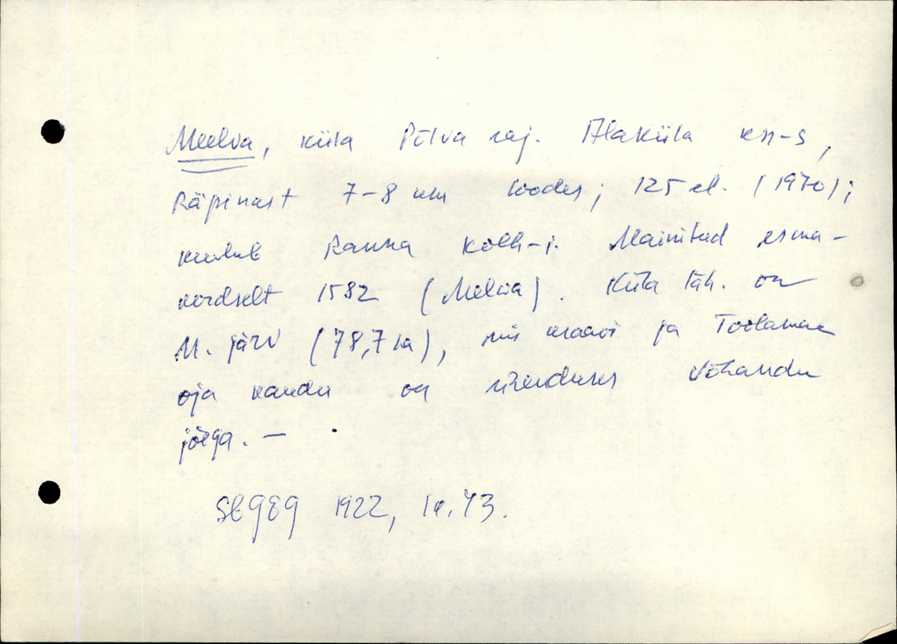 Meelva, küla Põlva raj. Alaküla kn-s,
Räpinast 7-8 km loodes; 125 el. (1970);
kuulub Ranna kolh-i. Mainitud esma-
kordselt 1582 (Melwa). Küla läh. on
M. järv (78,7 ha), mis kraavi ja Toolamaa
oja kaudu on ühenduses Võhandu
jõega. —
1922, lk. 43.